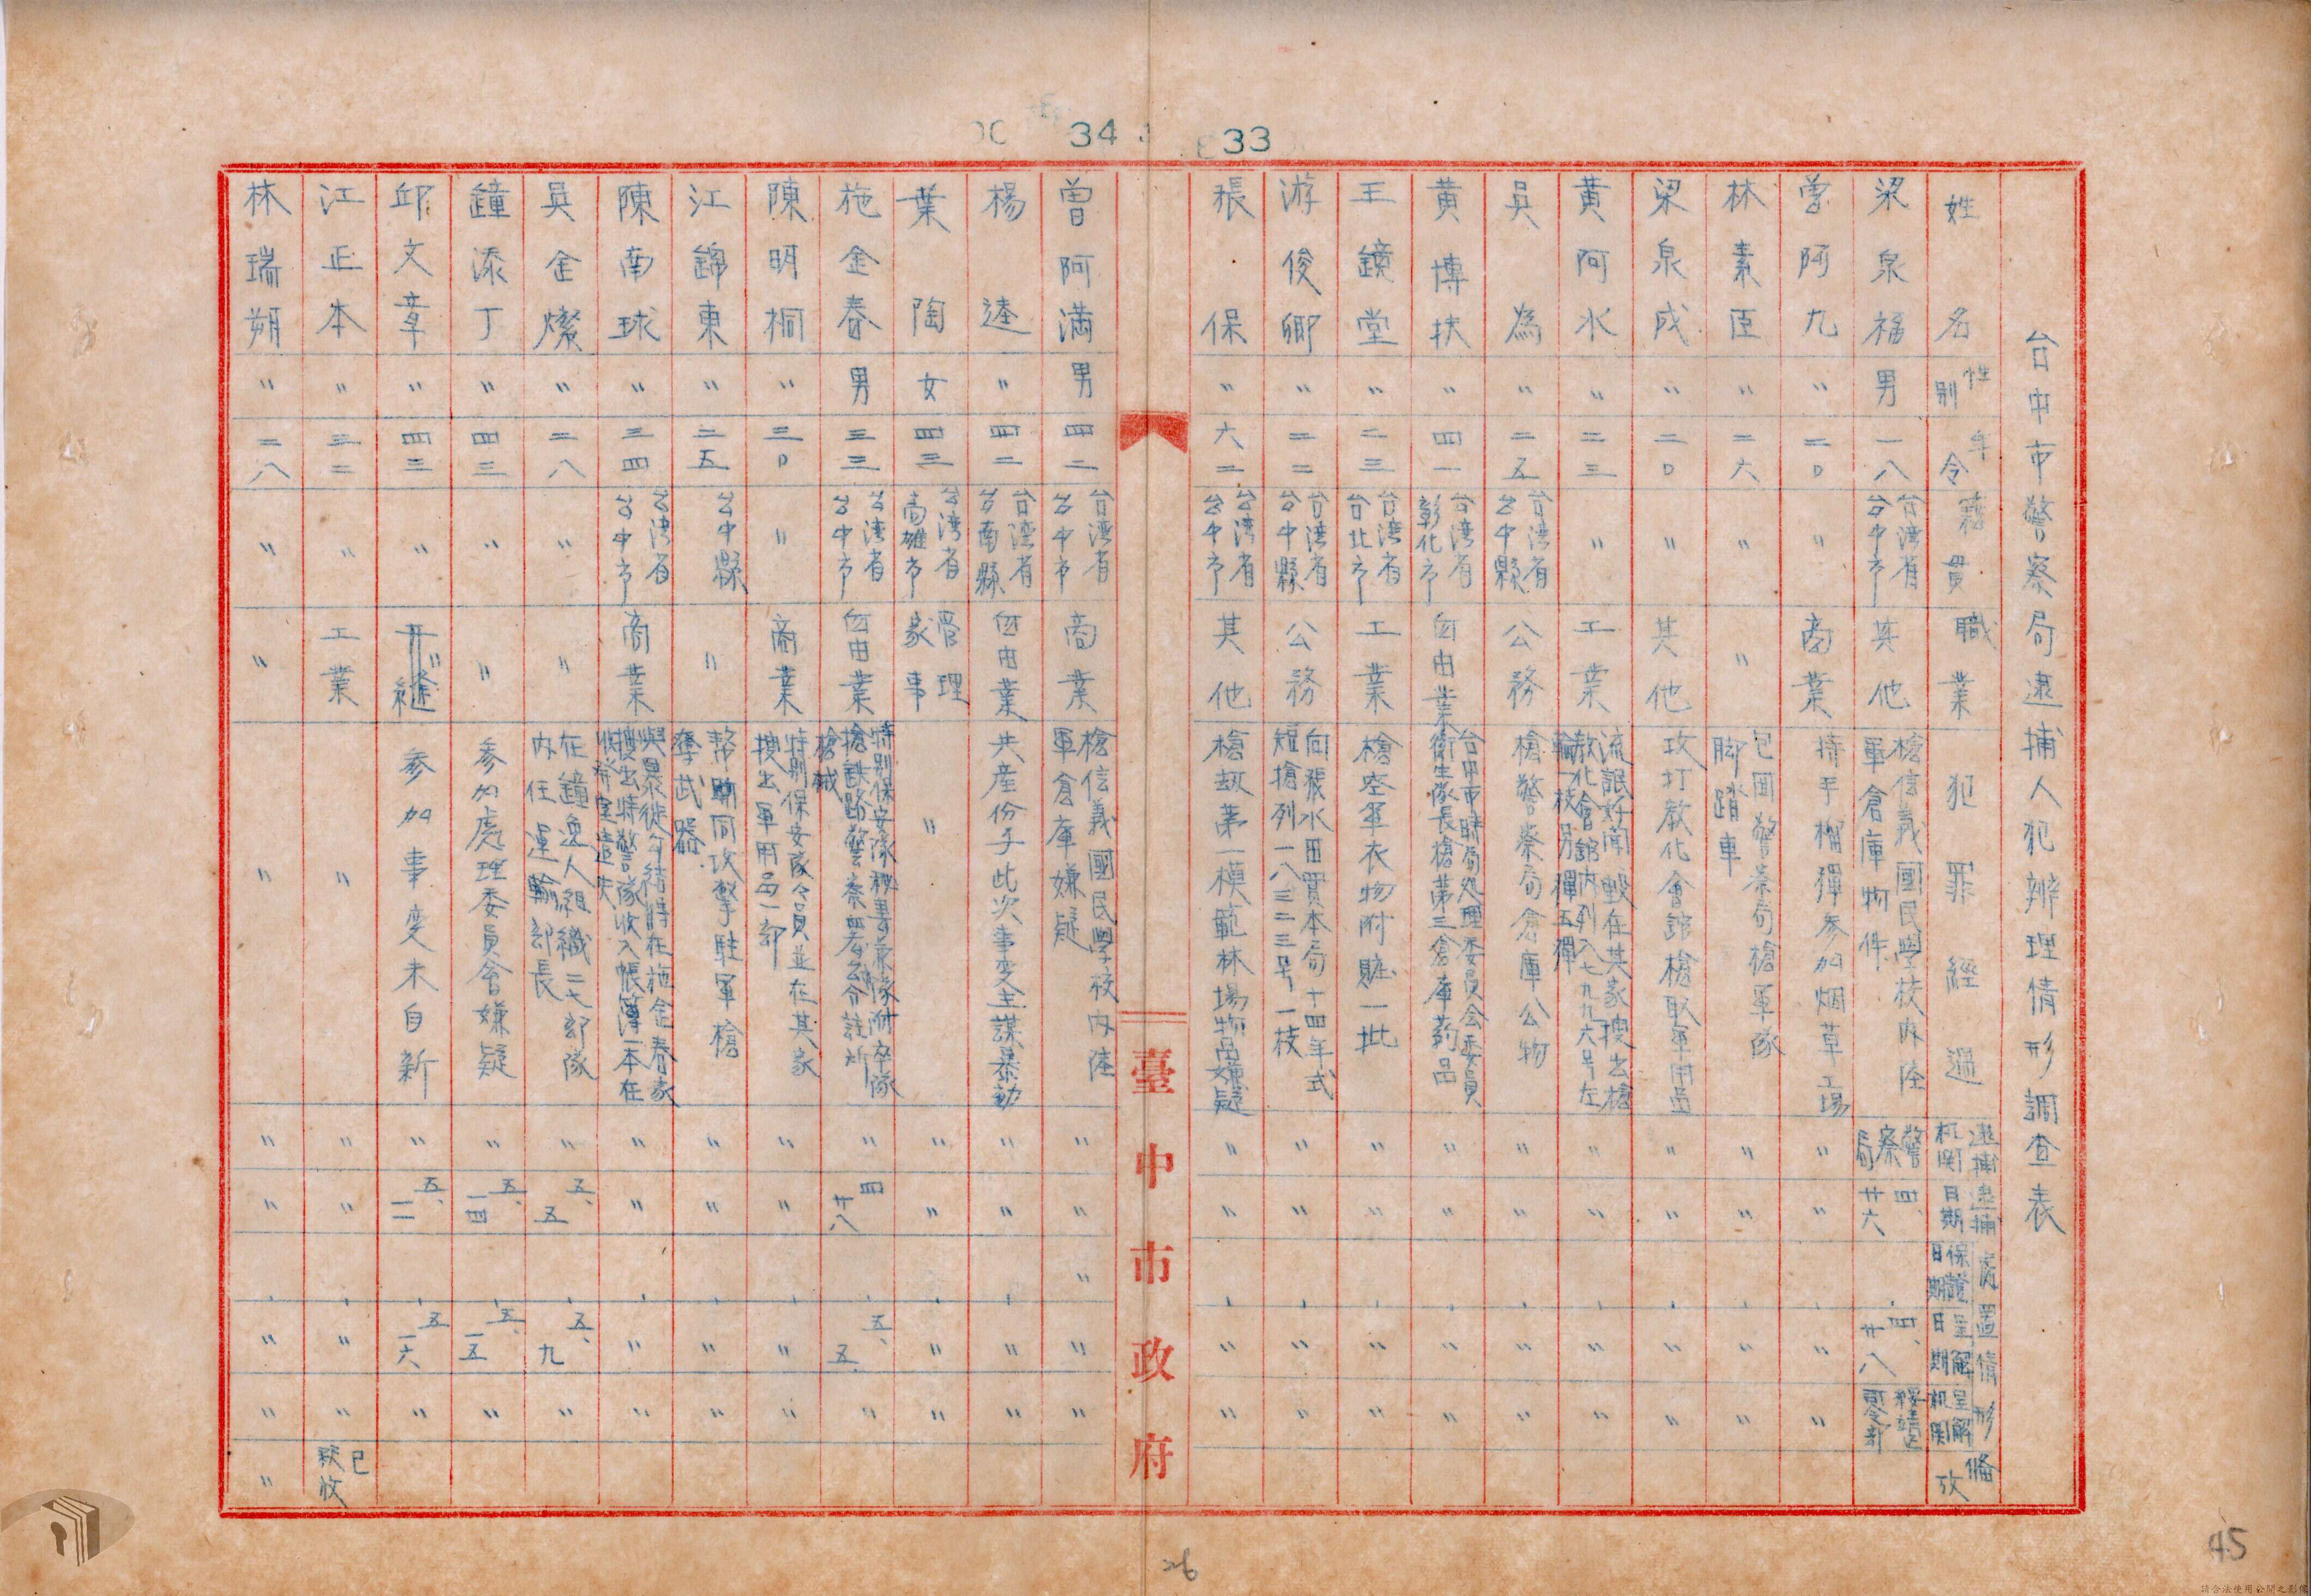 34
33
台中市警察局逮捕人犯辦理情形調查表
姓名 性別 年令 籍貫 職業 犯罪經過 逮捕机関 逮捕日期 處置情形 保證日期 呈解日期 呈解机関 備攷
梁泉福 男 一八 台湾省台中市 其他 槍信義國民學校内陸軍倉庫物件 警察局 四、廿六 四、廿八 綏靖區司令部
曾阿九 〃 二0 〃 商業 持手榴彈参加烟草工場 〃 〃 〃 〃
林素臣 〃 二六 〃 〃 包囲警察局槍軍隊脚踏車 〃 〃 〃 〃
梁泉成 〃 二0 〃 其他 攻打教化會館槍取軍用品 〃 〃 〃 〃
黄阿水 〃 二三 〃 工業 流氓好闹毆在其家搜出槍教化會館内列八七九九六号左輪一枝另彈五彈 〃 〃 〃 〃
吳為 〃 二五 台湾省台中縣 公務 槍警察局倉庫公物 〃 〃 〃 〃
黄博扶 〃 四一 台湾省彰化市 自由業 台中市時局処理委員会委員衛生隊長槍第三倉庫葯品 〃 〃 〃 〃
王鏡堂 〃 二三 台湾省台北市 工業 槍空軍衣物附賍一批 〃 〃 〃 〃
游俊卿 〃 二二 台湾省台中縣 公務 向張水田買本局十四年式短搶列一八三二三号一枝 〃 〃 〃 〃
張保 〃 六二 台湾省台中市 其他 槍刼第一模範林場物品嫌疑 〃 〃 〃 〃
臺中市政府
曾阿満 男 四二 台湾省台中市 商業 槍信義國民學校内陸軍倉庫嫌疑 〃 〃 〃 〃 〃
楊逵 〃 四二 台湾省台南縣 自由業 共産份子此次事変主謀暴動 〃 〃 〃 〃
葉陶 女 四三 台湾省高雄市 管理家事 〃 〃 〃 〃 〃
施金春 男 三三 台湾省台中市 自由業 特別保安隊秘書兼隊附率隊搶鉄路警察署台分註所槍械 〃 四廿八 五、五 〃
陳明桐 〃 三0 〃 商業 特別保安隊令員並在其家搜出軍用品一部 〃 〃 〃 〃
江錦東 〃 二五 台中縣 〃 幇助同攻撃駐軍槍奪武器 〃 〃 〃 〃
陳南球 〃 三四 台湾省台中市 商業 與暴徒勾結將在施金春家搜出特警隊收入帳簿一本在収発室遺失 〃 〃 〃 〃
吳金燦 〃 二八 〃 〃 在鐘逸人組織二七部隊内任運輸部長 〃 五、五 五、九 〃
鐘添丁 〃 四三 〃 〃 参加處理委員會嫌疑 〃 五、一四 五、一五 〃
邱文章 〃 四三 〃 〃 参加事変未自新 〃 五、一一 五一六 〃
江正本 〃 三二 〃 工業 〃 〃 〃 〃 〃 已
林瑞朔 〃 二八 〃 〃 〃 〃 〃 〃 〃 〃
26
45
請合法使用公開之影像